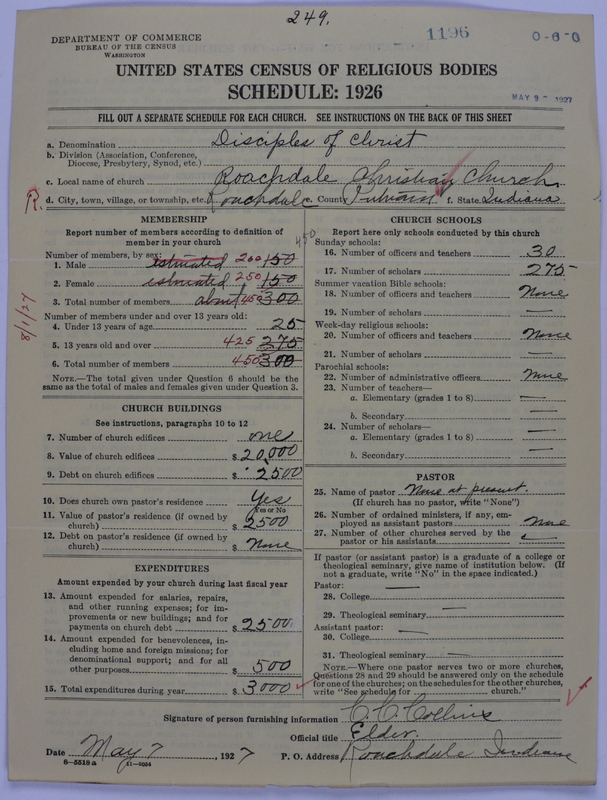 249.
1196
0-6-0
DEPARTMENT OF COMMERCE
BUREAU OF THE CENSUS
WASHINGTON
UNITED STATES CENSUS OF RELIGIOUS BODIES
SCHEDULE: 1926
MAY 9 1927
FILL OUT A SEPARATE SCHEDULE FOR EACH CHURCH. SEE INSTRUCTIONS ON THE BACK OF THIS SHEET
a. Denomination Disciples of Christ
b. Division (Association, Conference, Diocese, Presbytery, Synod, etc.)
c. Local name of church Roachdale Christian Church
R. d. City, town, village, or township, etc. Roachdale e. County Putnam f. State Indiana
MEMBERSHIP
Report number of members according to definition of member in your church
450
Number of members, by sex:
1. Male estimated 200 150
2. Female estimated 250 150
3. Total number of members about 450 300
Number of members under and over 13 years old:
4. Under 13 years of age 25
5. 13 years old and over 425 275
6. Total number of members 450 300
8/1/27
NOTE.—The total given under Question 6 should be the same as the total of males and females given under Question 3.
CHURCH BUILDINGS
See instructions, paragraphs 10 to 12
7. Number of church edifices one
8. Value of church edifices $ 20,000
9. Debt on church edifices $ 2500
10. Does church own pastor's residence Yes
Yes or No
11. Value of pastor's residence (if owned by church) $ 2500
12. Debt on pastor's residence (if owned by church) $ None
EXPENDITURES
Amount expended by your church during last fiscal year
13. Amount expended for salaries, repairs, and other running expenses; for improvements or new buildings; and for payments on church debt $ 2500
14. Amount expended for benevolences, including home and foreign missions; for denominational support; and for all other purposes $ 500
15. Total expenditures during year $ 3000
CHURCH SCHOOLS
Report here only schools conducted by this church
Sunday schools:
16. Number of officers and teachers 30
17. Number of scholars 275
Summer vacation Bible schools:
18. Number of officers and teachers None
19. Number of scholars —
Week-day religious schools:
20. Number of officers and teachers None
21. Number of scholars —
Parochial schools:
22. Number of administrative officers None
23. Number of teachers—
a. Elementary (grades 1 to 8) —
b. Secondary —
24. Number of scholars—
a. Elementary (grades 1 to 8) —
b. Secondary —
PASTOR
25. Name of pastor None at present.
(If church has no pastor, write "None")
26. Number of ordained ministers, if any, employed as assistant pastors None
27. Number of other churches served by the pastor or his assistants —
If pastor (or assistant pastor) is a graduate of a college or theological seminary, give name of institution below. (If not a graduate, write "No" in the space indicated.)
Pastor:
28. College —
29. Theological seminary —
Assistant pastor:
30. College —
31. Theological seminary —
NOTE.—Where one pastor serves two or more churches, Questions 28 and 29 should be answered only on the schedule for one of the churches; on the schedules for the other churches, write "See schedule for church."
Signature of person furnishing information C. C. Collins
Official title Elder.
Date May 7 1927 P. O. Address Roachdale Indiana
6-5518 a 11-9034